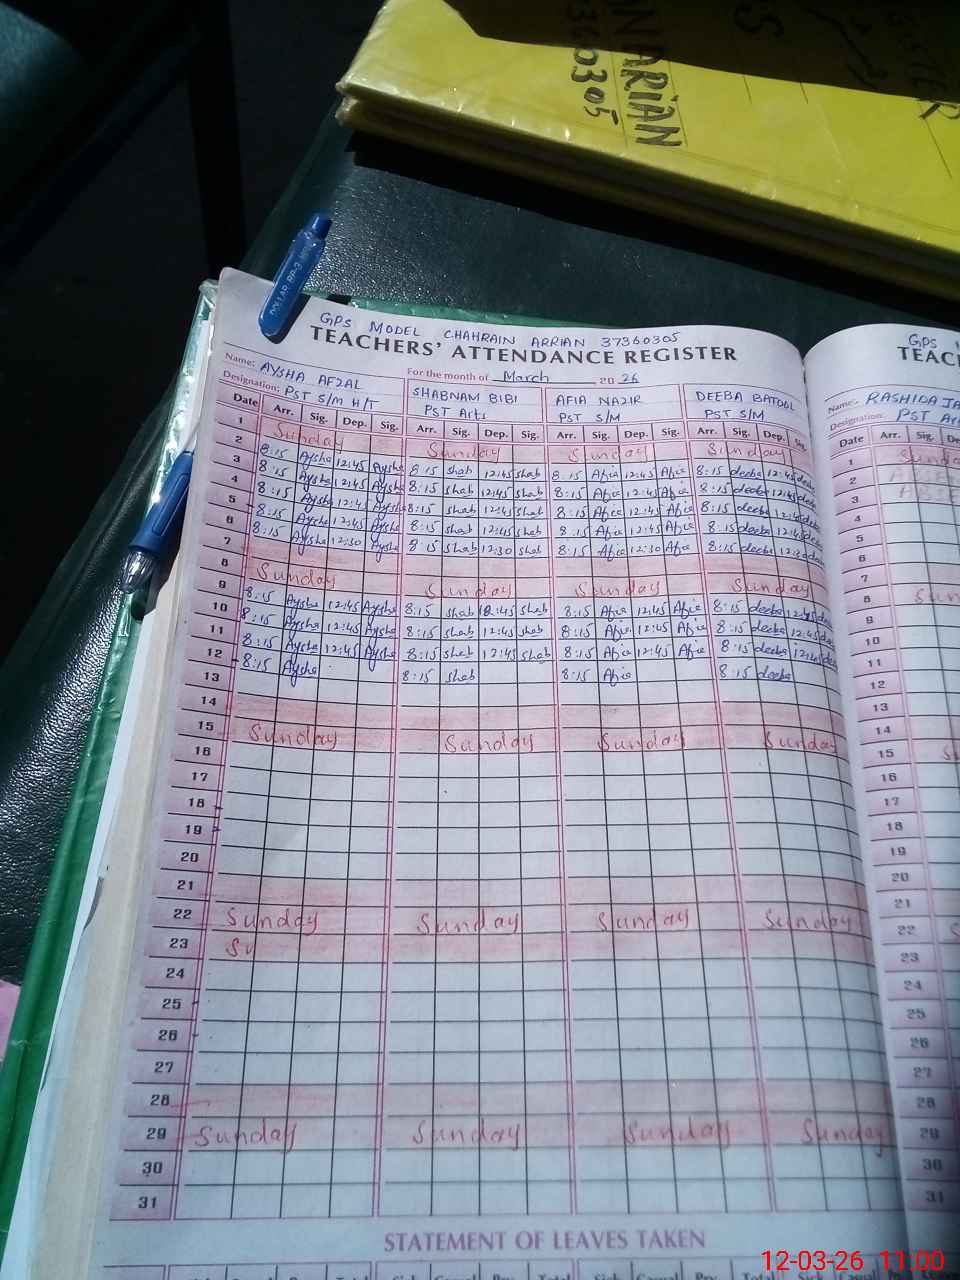 NARIAN
360305
GPS MODEL CHAHRAIN ARRIAN 37360305
TEACHERS' ATTENDANCE REGISTER
For the month of March 20 26
Name: AYSHA AFZAL SHABNAM BIBI AFIA NAZIR DEEBA BATOOL
Designation: PST S/M H/T PST Arts PST S/M PST S/M
Date Arr. Sig. Dep. Sig. Arr. Sig. Dep. Sig. Arr. Sig. Dep. Sig. Arr. Sig. Dep. Sig.
1 Sunday Sunday Sunday Sunday
2 8:15 Aysha 12:45 Aysha 8:15 shab 12:45 shab 8:15 Afia 12:45 Afia 8:15 deeba 12:45 deeba
3 8:15 Aysha 12:45 Aysha 8:15 shab 12:45 shab 8:15 Afia 12:45 Afia 8:15 deeba 12:45 deeba
4 8:15 Aysha 12:45 Aysha 8:15 shab 12:45 shab 8:15 Afia 12:45 Afia 8:15 deeba 12:45 deeba
5 8:15 Aysha 12:45 Aysha 8:15 shab 12:45 shab 8:15 Afia 12:45 Afia 8:15 deeba 12:45 deeba
6 8:15 Aysha 12:30 Aysha 8:15 shab 12:30 shab 8:15 Afia 12:30 Afia 8:15 deeba 12:30 deeba
7
8 Sunday Sunday Sunday Sunday
9 8:15 Aysha 12:45 Aysha 8:15 shab 12:45 shab 8:15 Afia 12:45 Afia 8:15 deeba 12:45 deeba
10 8:15 Aysha 12:45 Aysha 8:15 shab 12:45 shab 8:15 Afia 12:45 Afia 8:15 deeba 12:45 deeba
11 8:15 Aysha 12:45 Aysha 8:15 shab 12:45 shab 8:15 Afia 12:45 Afia 8:15 deeba 12:45 deeba
12 8:15 Aysha 8:15 shab 8:15 Afia 8:15 deeba
13
14
15 Sunday Sunday Sunday Sunday
16
17
18
19
20
21
22 Sunday Sunday Sunday Sunday
23 Su
24
25
26
27
28
29 Sunday Sunday Sunday Sunday
30
31
STATEMENT OF LEAVES TAKEN
GPS
TEAC
Name: RASHIDA JA
Designation: PST Ar
Date Arr. Sig. D
1 Sunda
2
3
4
5
6
7
8 Sun
9
10
11
12
13
14
15 S
16
17
18
19
20
21
22 S
23
24
25
26
27
28
29
30
31
12-03-26 11:00